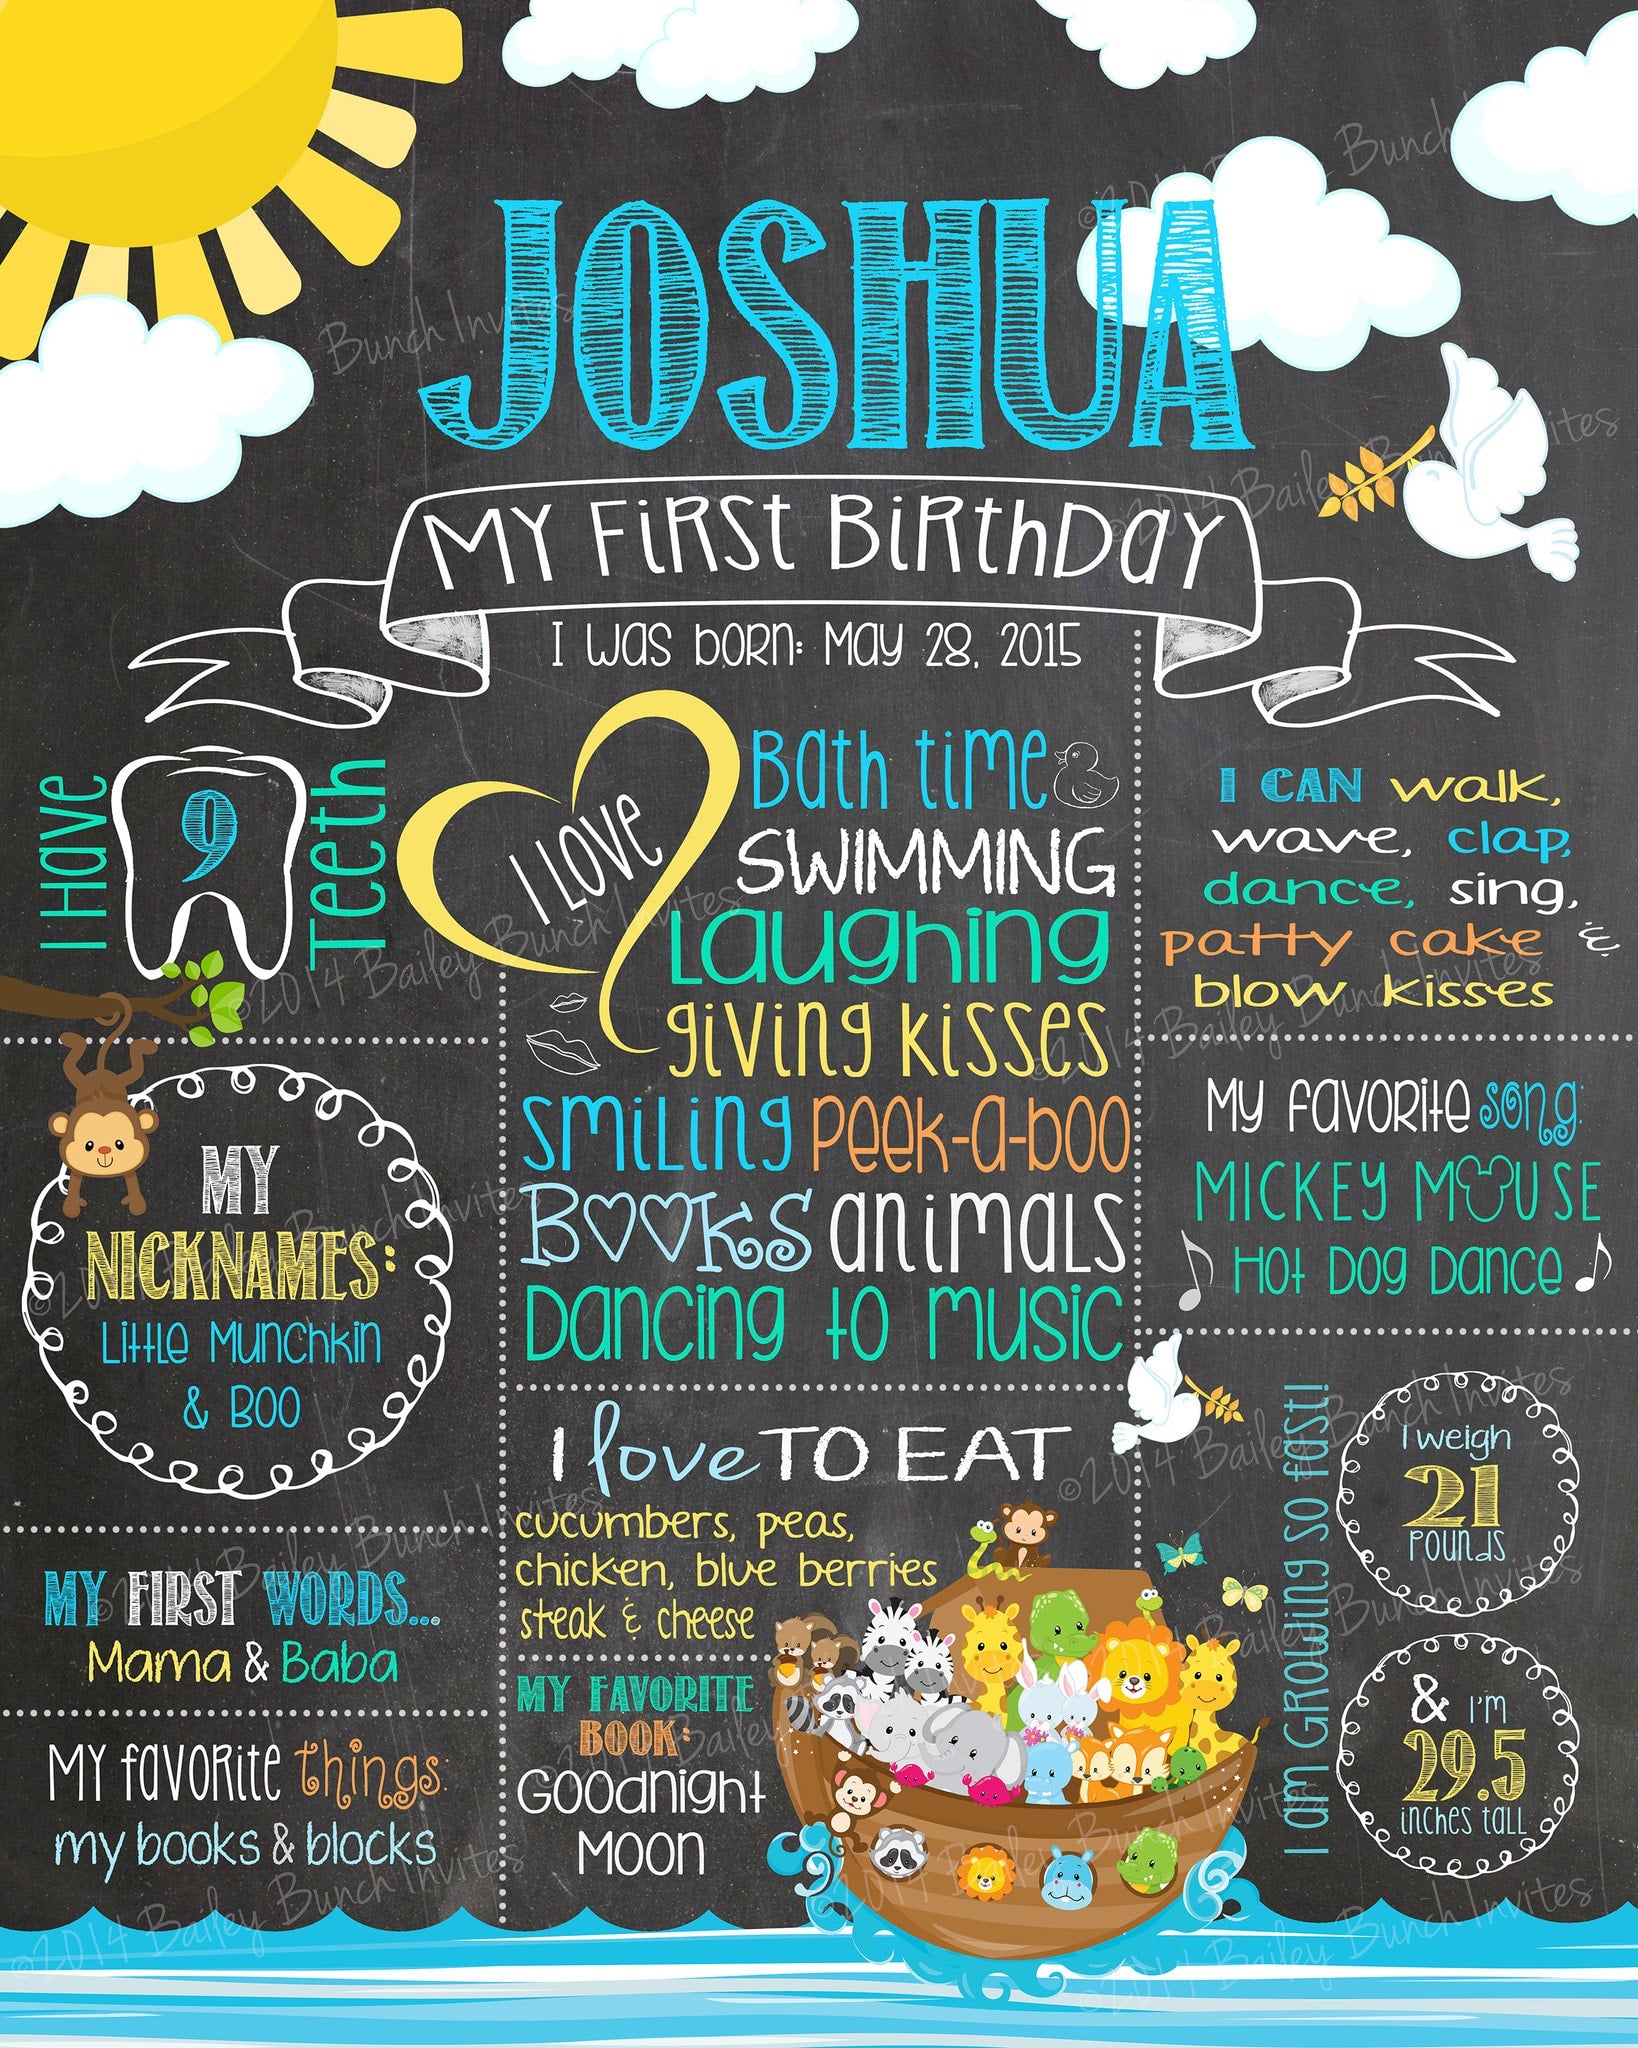 JOSHUA
MY FIRST BIRTHDAY
I WAS BORN: MAY 28, 2015
I Have
9
Teeth
I LOVE
Bath time
SWIMMING
Laughing
giving kisses
Smiling Peek-a-boo
BOOKS animals
Dancing to music
I CAN walk,
wave, clap,
dance, sing,
patty cake &
blow kisses
MY NICKNAMES:
Little Munchkin
& Boo
My favorite song:
MICKEY MOUSE
Hot Dog Dance
I love TO EAT
cucumbers, peas,
chicken, blue berries
steak & cheese
MY FIRST WORDS...
Mama & Baba
My favorite things:
my books & blocks
MY FAVORITE
BOOK:
Goodnight
Moon
I am GROWING SO fast!
I weigh
21
POUNDS
& I'm
29.5
inches tall
©2014 Bailey Bunch Invites